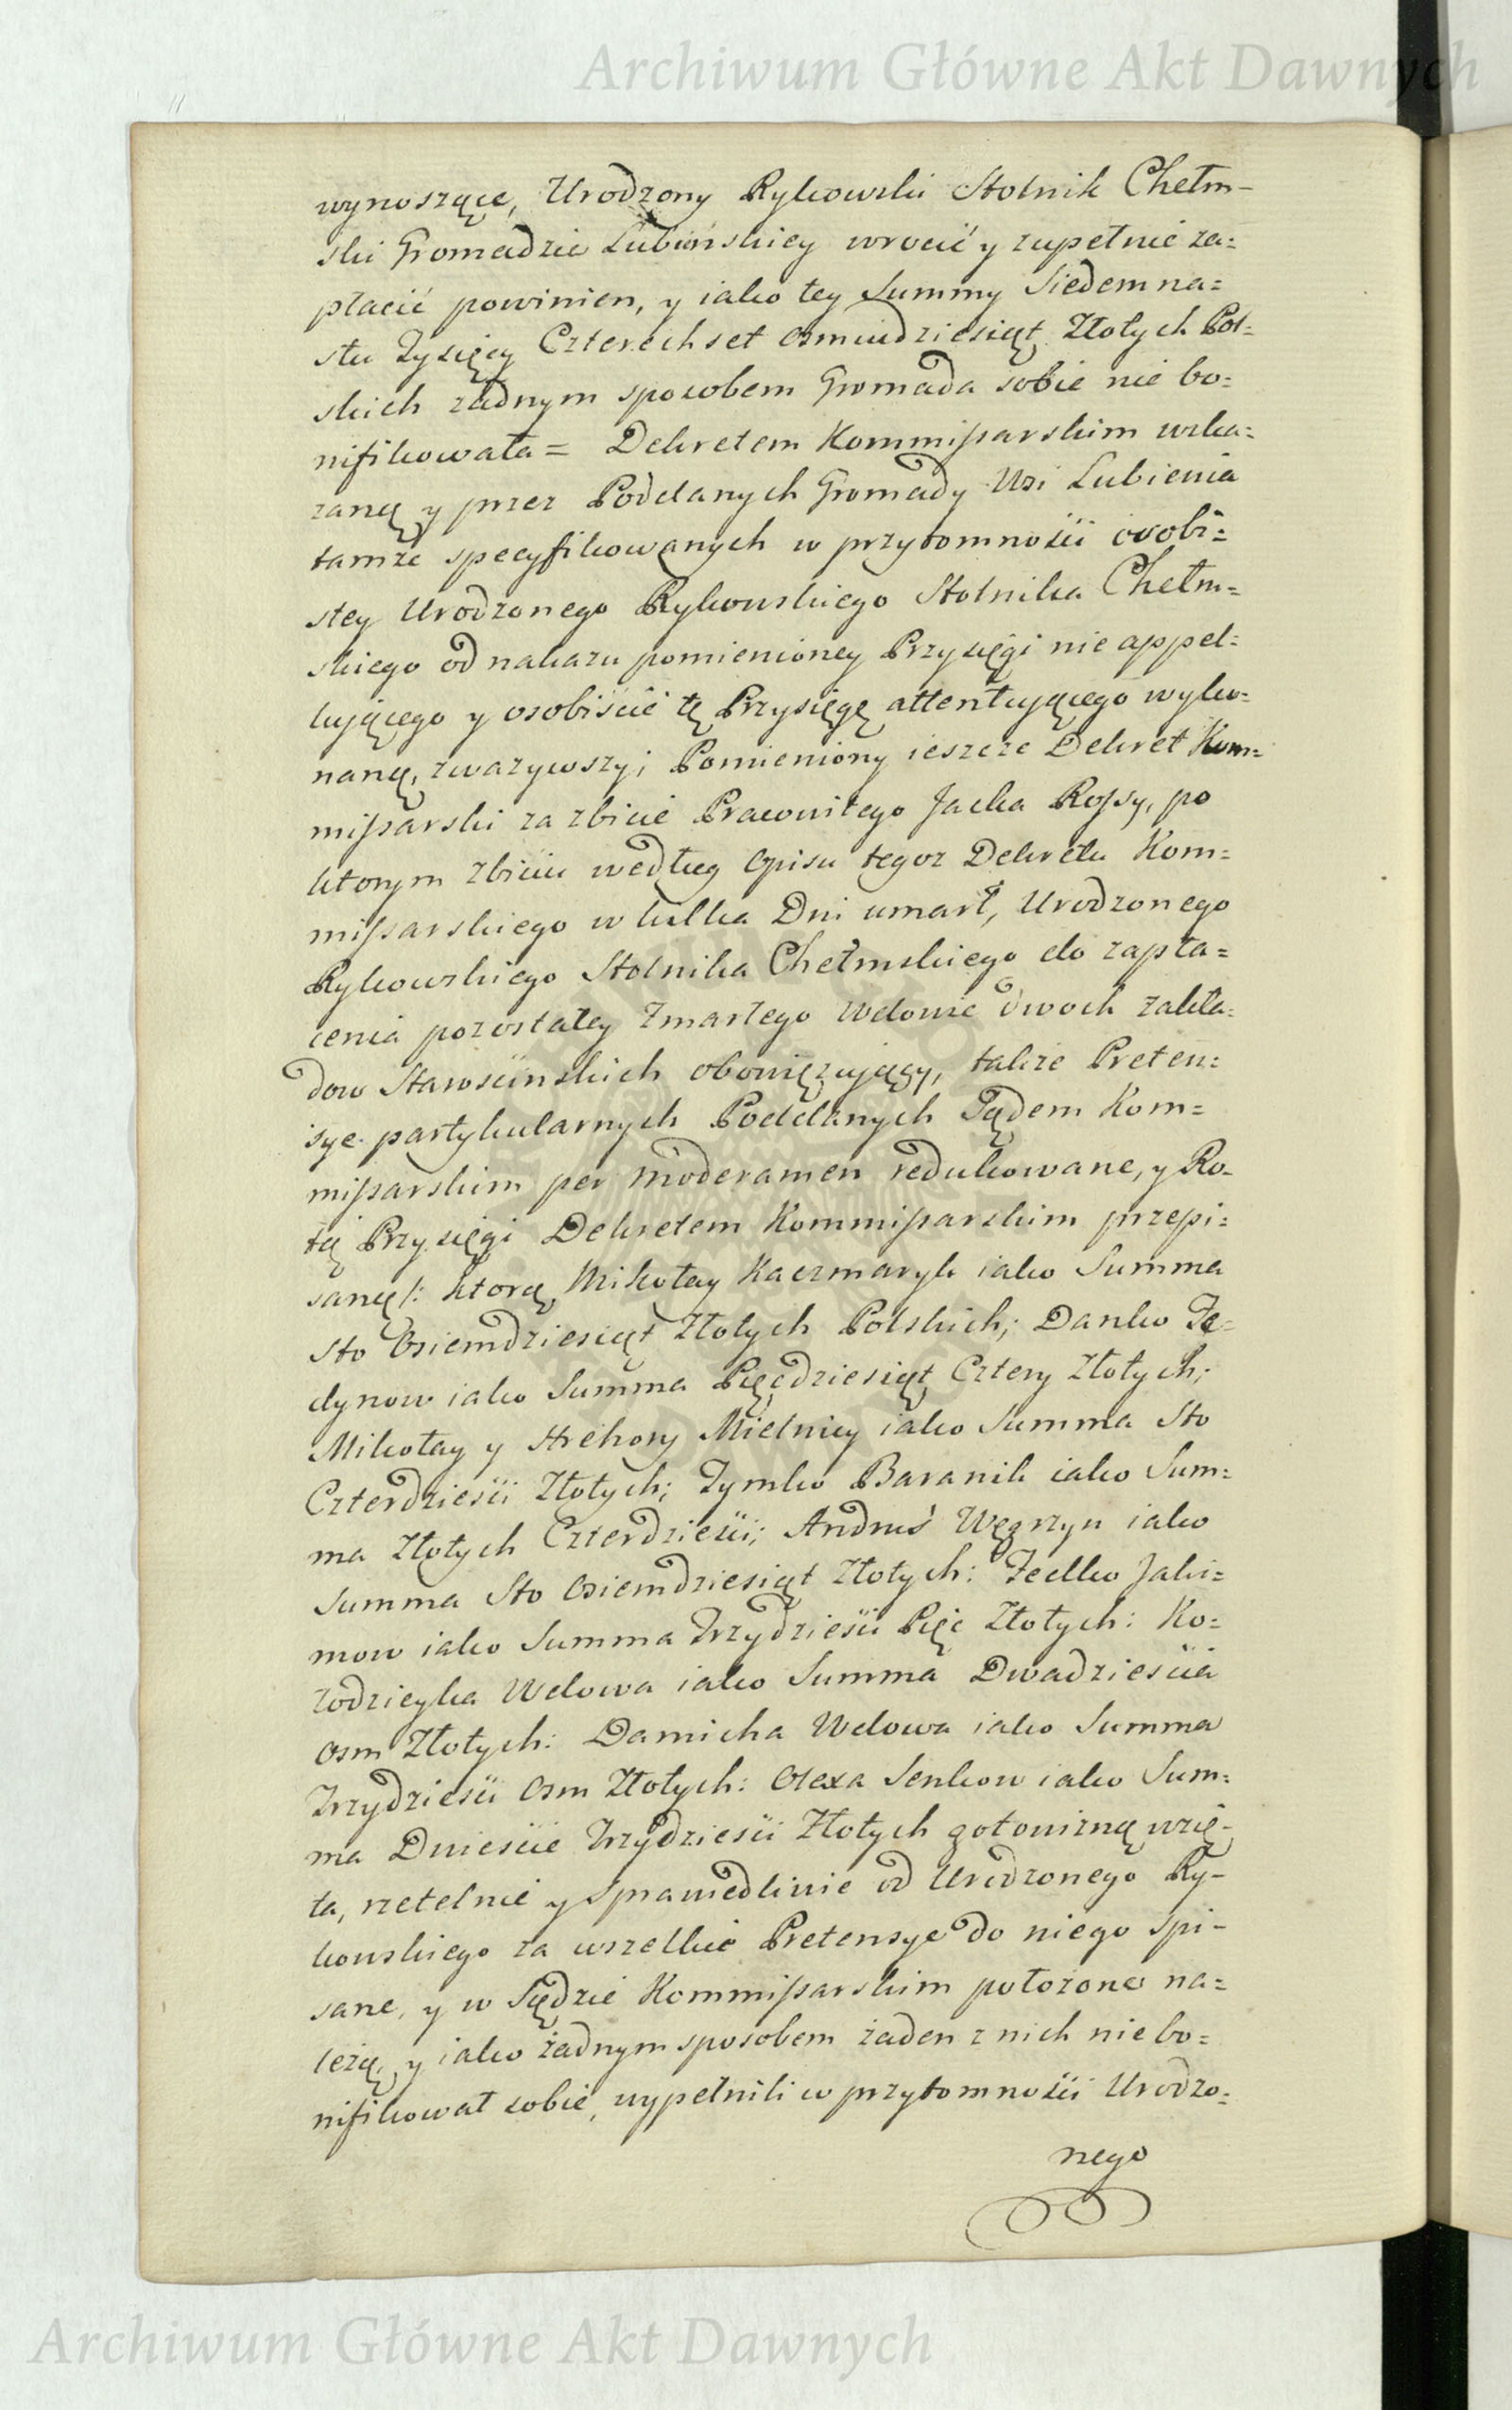 Archiwum Główne Akt Dawnych
wynoszące, Urodzony Rykowski Stolnik Chełm-
ski Gromadzie Lubieńskiey wrocić y zupełnie za=
płacić powinien, y iako tey Summy Siedemna=
stu Tysięcy Czterechset osmiudziesiąt Złotych Pol=
skich żadnym sposobem Gromada sobie nie bo=
nifikowała = Dekretem Kommissarskim wska=
zaną y przez Poddanych Gromady Wsi Lubienia
tamże specyfikowanych w przytomności osobi=
stey Urodzonego Rykowskiego Stolnika Chełm=
skiego od nakazu pomienioney Przysięgi nie appel=
lującego y osobiście tę Przysięgę attentującego wyko=
naną, zważywszy; Pomieniony ieszcze Dekret Kom=
missarski za zbicie Pracowitego Jacka Rossy, po
ktorym zbiciu według Opisu tegoz Dekretu Kom=
missarskiego w kilka Dni umarł, Urodzonego
Rykowskiego Stolnika Chełmskiego do zapła=
cenia pozostałey Zmarłego Wdowie dwoch zakła=
dow Starościnskich obowięzuięcy, także Preten=
sye partykularnych Poddanych Sądem Kom=
missarskim per moderamen redukowane, y Ro=
tę Przysięgi Dekretem Kommissarskim przepi=
saną /: ktorą Mikołay Kaczmaryk iako Summa
Sto Osiemdziesiąt Złotych Polskich; Danko Fe=
dynow iako Summa Pięćdziesiąt Cztery Złotych;
Mikołay y Hrehory Mielnicy iako Summa Sto
Czterdzieści Złotych; Tymko Baranik iako Sum=
ma Złotych Czterdzieści; Andruś Węgrzyn iako
Summa Sto Osiemdziesiąt Złotych: Fedko Jaki=
mow iako Summa Trzydzieści Pięć Złotych: Ko=
zodzieyka Wdowa iako Summa Dwadzieścia
Osm Złotych: Damicha Wdowa iako Summa
Trzydzieści Osm Złotych: Olexa Senkow iako Sum=
ma Dwieście Trzydzieści Złotych gotowizną wzię-
ta, rzetelnie y sprawiedliwie od Urodzonego Ry-
kowskiego za wszelkie Pretensye do niego spi-
sane, y w Sądzie Kommissarskim położone na=
leżą, y iako żadnym sposobem żaden z nich nie bo=
nifikował sobie, wypełnili w przytomności Urodzo=
nego
Archiwum Główne Akt Dawnych